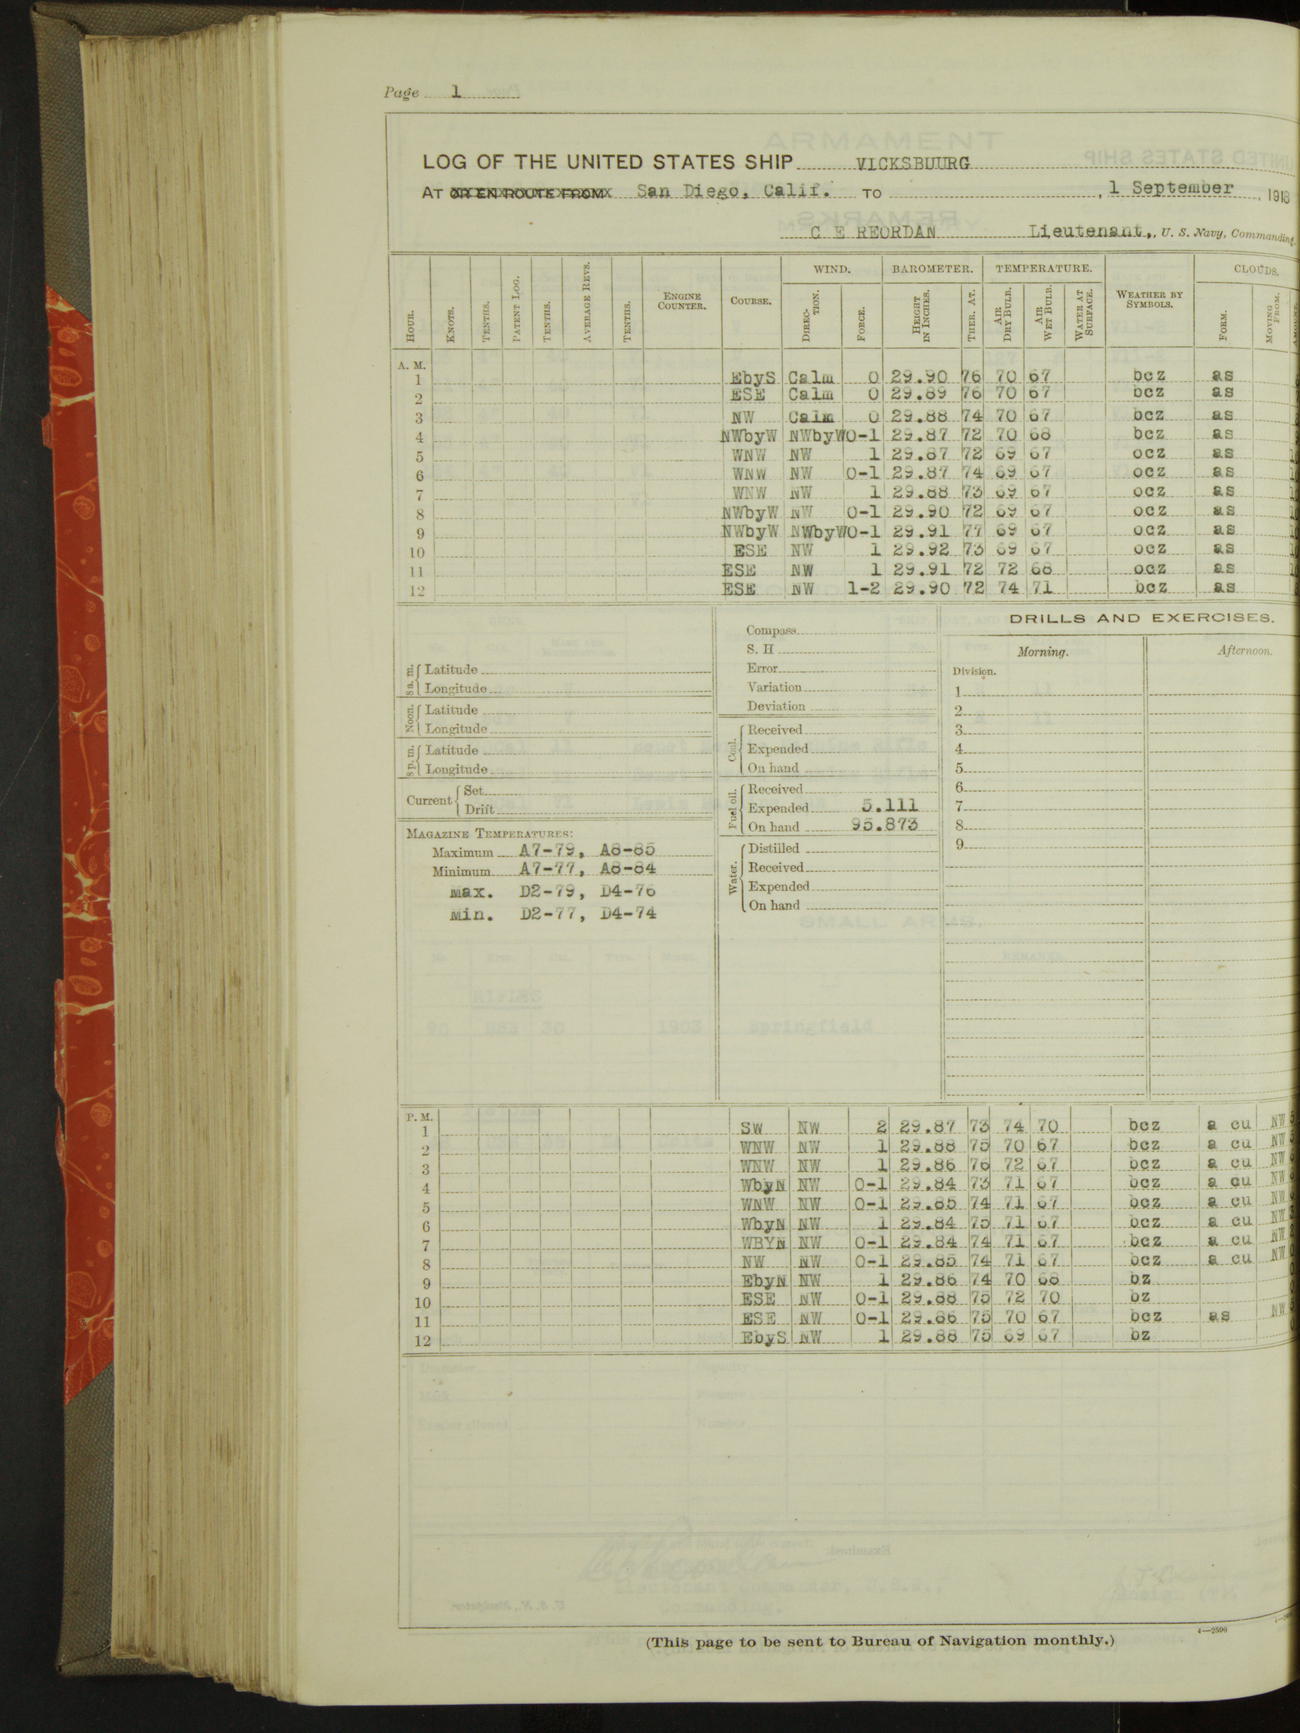 Page 1
LOG OF THE UNITED STATES SHIP VICKSBUURG
AT OR EN ROUTE FROM San Diego, Calif. TO , 1 September , 1918
C E REORDAN Lieutenant, U. S. Navy, Commanding.
HOUR. KNOTS. TENTHS. PATENT LOG. TENTHS. AVERAGE REVS. TENTHS. ENGINE COUNTER. COURSE. WIND. DIRECTION. FORCE. BAROMETER. HEIGHT IN INCHES. THER. AT. TEMPERATURE. AIR DRY BULB. AIR WET BULB. WATER AT SURFACE. WEATHER BY SYMBOLS. CLOUDS. FORM. MOVING FROM.
A. M.
1 EbyS Calm 0 29.90 76 70 67 bcz as
2 ESE Calm 0 29.89 76 70 67 bcz as
3 NW Calm 0 29.88 74 70 67 bcz as
4 NWbyW NWbyW 0-1 29.87 72 70 68 bcz as
5 WNW NW 1 29.87 72 69 67 ocz as
6 WNW NW 0-1 29.87 74 69 67 ocz as
7 WNW NW 1 29.88 73 69 67 ocz as
8 NWbyW NW 0-1 29.90 72 69 67 ocz as
9 NWbyW NWbyW 0-1 29.91 77 69 67 ocz as
10 ESE NW 1 29.92 73 69 67 ocz as
11 ESE NW 1 29.91 72 72 68 ocz as
12 ESE NW 1-2 29.90 72 74 71 bcz as
8 a. m. Latitude
Longitude
Noon. Latitude
Longitude
8 p. m. Latitude
Longitude
Current Set
Drift
MAGAZINE TEMPERATURES:
Maximum A7-79, A8-85
Minimum A7-77, A8-84
max. D2-79, D4-76
min. D2-77, D4-74
Compass
S. H
Error
Variation
Deviation
Coal. Received
Expended
On hand
Fuel oil. Received
Expended 5.111
On hand 95.873
Water. Distilled
Received
Expended
On hand
DRILLS AND EXERCISES.
Morning. Afternoon.
Division.
1
2
3
4
5
6
7
8
9
P. M.
1 SW NW 2 29.87 73 74 70 bcz a cu NW
2 WNW NW 1 29.88 75 70 67 bcz a cu NW
3 WNW NW 1 29.86 76 72 67 bcz a cu NW
4 WbyN NW 0-1 29.84 73 71 67 bcz a cu NW
5 WNW NW 0-1 29.85 74 71 67 bcz a cu NW
6 WbyN NW 1 29.84 75 71 67 bcz a cu NW
7 WBYN NW 0-1 29.84 74 71 67 bcz a cu NW
8 NW NW 0-1 29.85 74 71 67 bcz a cu NW
9 EbyN NW 1 29.86 74 70 68 bz
10 ESE NW 0-1 29.88 75 72 70 bz
11 ESE NW 0-1 29.86 75 70 67 bcz as NW
12 EbyS NW 1 29.88 75 69 67 bz
4—2590
(This page to be sent to Bureau of Navigation monthly.)